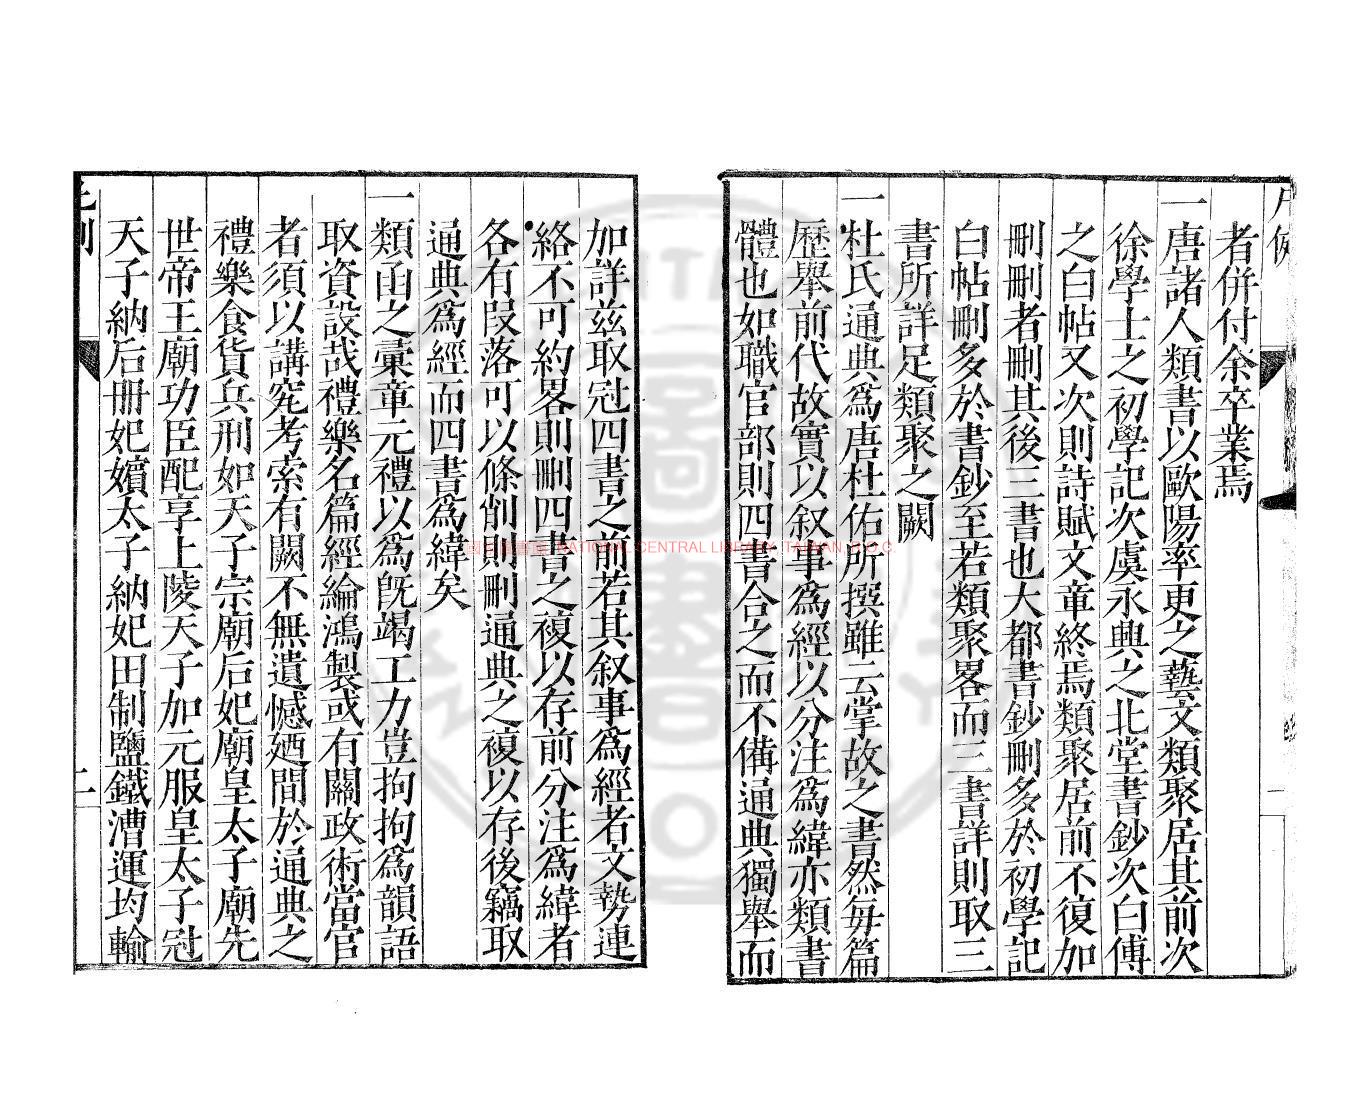 者併付余卒業焉
一唐諸人類書以歐陽率更之藝文類聚居其前次
徐學士之初學記次虞永興之北堂書鈔次白傅
之白帖又次則詩賦文章終焉類聚居前不復加
刪刪者刪其後三書也大都書鈔刪多於初學記
白帖刪多於書鈔至若類聚畧而三書詳則取三
書所詳足類聚之闕
一杜氏通典爲唐杜佑所撰雖云掌故之書然每篇
歷舉前代故實以叙事爲經以分注爲緯亦類書
體也如職官部則四書合之而不備通典獨舉而
加詳茲取冠四書之前若其叙事爲經者文勢連
絡不可約畧則刪四書之複以存前分注爲緯者
各有段落可以條削則刪通典之複以存後竊取
通典爲經而四書爲緯矣
一類函之彙章元禮以爲旣竭工力豈拘拘爲韻語
取資設哉禮樂名篇經綸鴻製或有關政術當官
者須以講究考索有闕不無遺憾廼間於通典之
禮樂食貨兵刑如天子宗廟后妃廟皇太子廟先
世帝王廟功臣配享上陵天子加元服皇太子冠
天子納后冊妃嬪太子納妃田制鹽鐵漕運均輸
二
國家圖書館 NATIONAL CENTRAL LIBRARY, TAIWAN, R.O.C.